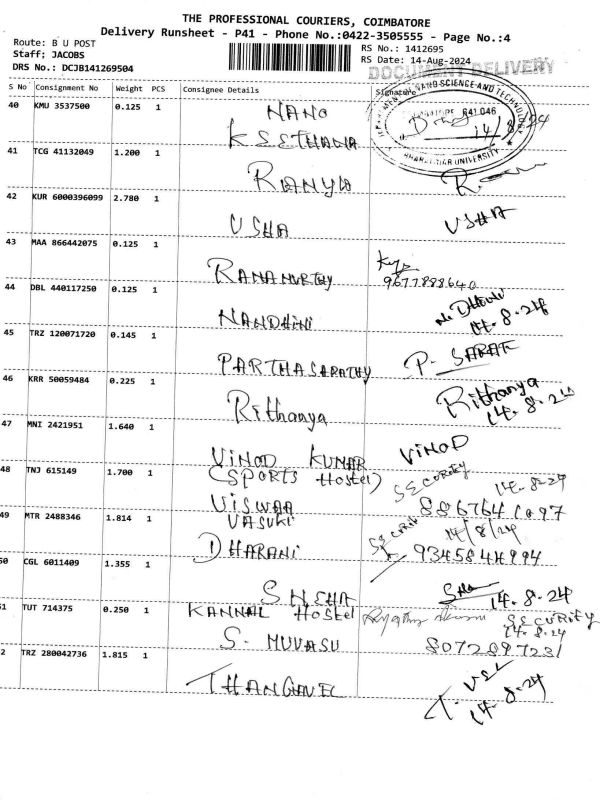 THE PROFESSIONAL COURIERS, COIMBATORE
Delivery Runsheet - P41 - Phone No.:0422-3505555 - Page No.:4
Route: B U POST
RS No.: 1412695
Staff; JACOBS
RS Date: 14-Aug-2024
DRS No.: DCJB141269504
DOCUMENT DELIVERY
S No Consignment No Weight PCS Consignee Details Signature
40 KMU 3537500 0.125 1 NANO
KSETHANA 14/8/24
NANO SCIENCE AND TECHNOLOGY
641 046
BHARATHIAR UNIVERSITY
41 TCG 41132049 1.200 1 RANYA
42 KUR 6000396099 2.780 1 USHA USHA
43 MAA 866442075 0.125 1 RAMAMURTHY
9677888640
44 DBL 440117250 0.125 1 NANDHINI
14.8.24
45 TRZ 120071720 0.145 1 PARTHASARATHY P. SARAT
46 KRR 50059484 0.225 1 Rithanya Rithanya
14.8.24
47 MNI 2421951 1.640 1 VINOD KUMAR VINOD
(SPORTS Hostel) SECURITY 14.8.24
48 TNJ 615149 1.700 1 VISWAA
VASUKI 14/8/24
49 MTR 2488346 1.814 1 DHARANI 9345844994
50 CGL 6011409 1.355 1 SNEHA 14.8.24
KANNAL Hostel SECURITY
14.8.24
51 TUT 714375 0.250 1 S. MUVASU 8072897231
52 TRZ 280042736 1.815 1 THANGAVEL
14.8.24